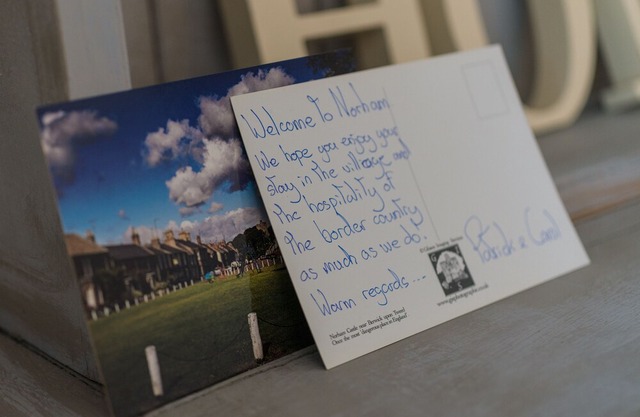 Welcome to Norham
We hope you enjoy your
stay in the village and
the hospitality of
the border country
as much as we do.
Warm regards...
Patrick & Carol
Norham Castle near Berwick upon Tweed
Once the most 'dangerous place in England'